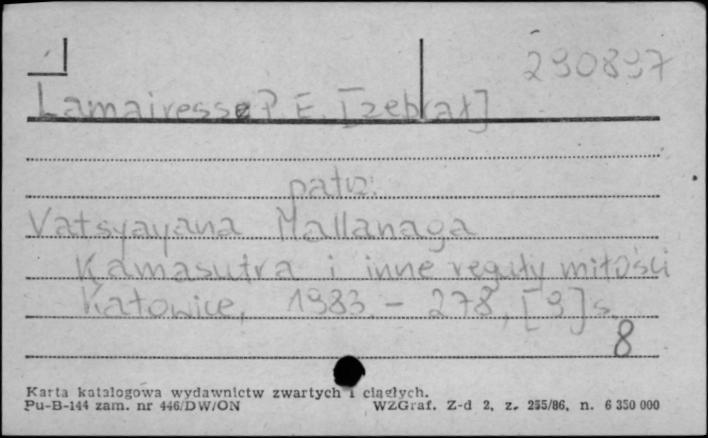 290897
Lamairesse P. E. [zebrał]
patrz:
Vatsyayana Mallanaga
Kamasutra i inne reguły miłości
Katowice, 1983. - 278, [9] s.
8
Karta katalogowa wydawnictw zwartych i ciągłych.
Pu-B-144 zam. nr 446/DW/ON WZGraf. Z-d 2, z. 255/86, n. 6 350 000